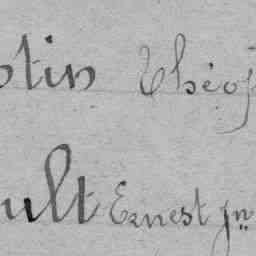 otin Théop
ult Ernest Jn